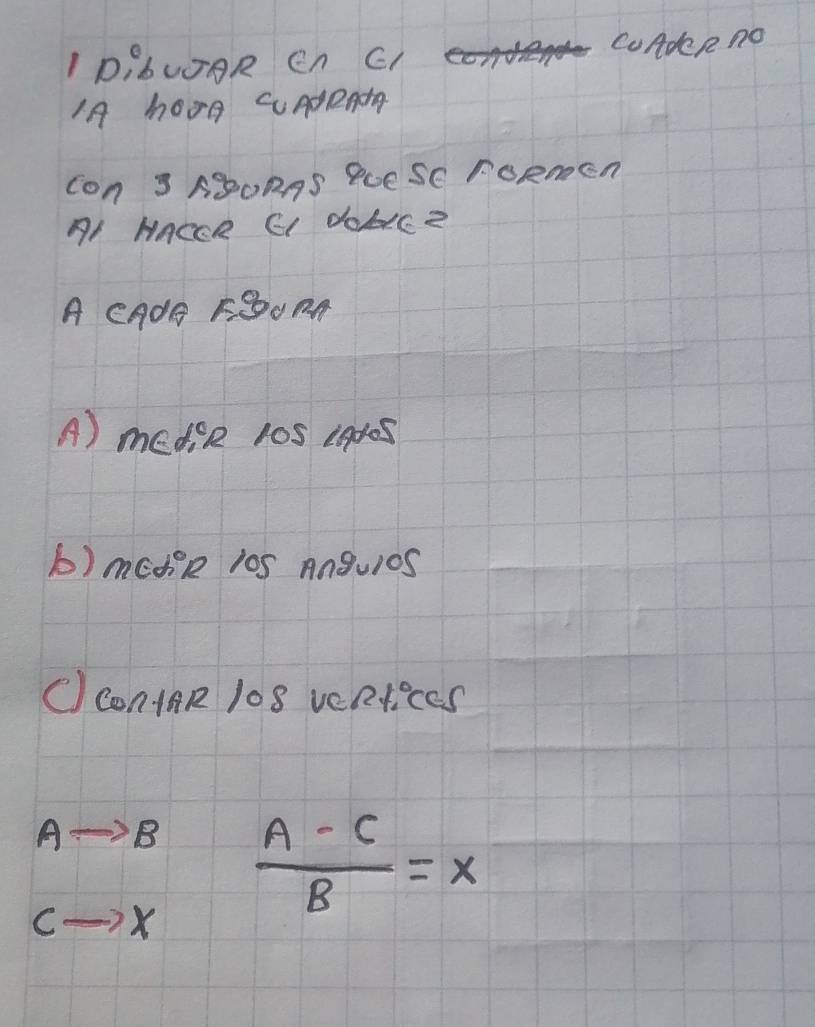 1 DibUJAR En El CUAdERnO
lA hOJA CUAdRAdA
con 3 FigURAS qUE SE FORmEn
Al HACER El doblEz
A CAdA FigURA
A) mEdiR lOS lAdOS
b) mEdiR lOS AngUlOS
C) ConTAR lOS vERticES
A → B
C → X
A - C / B = X